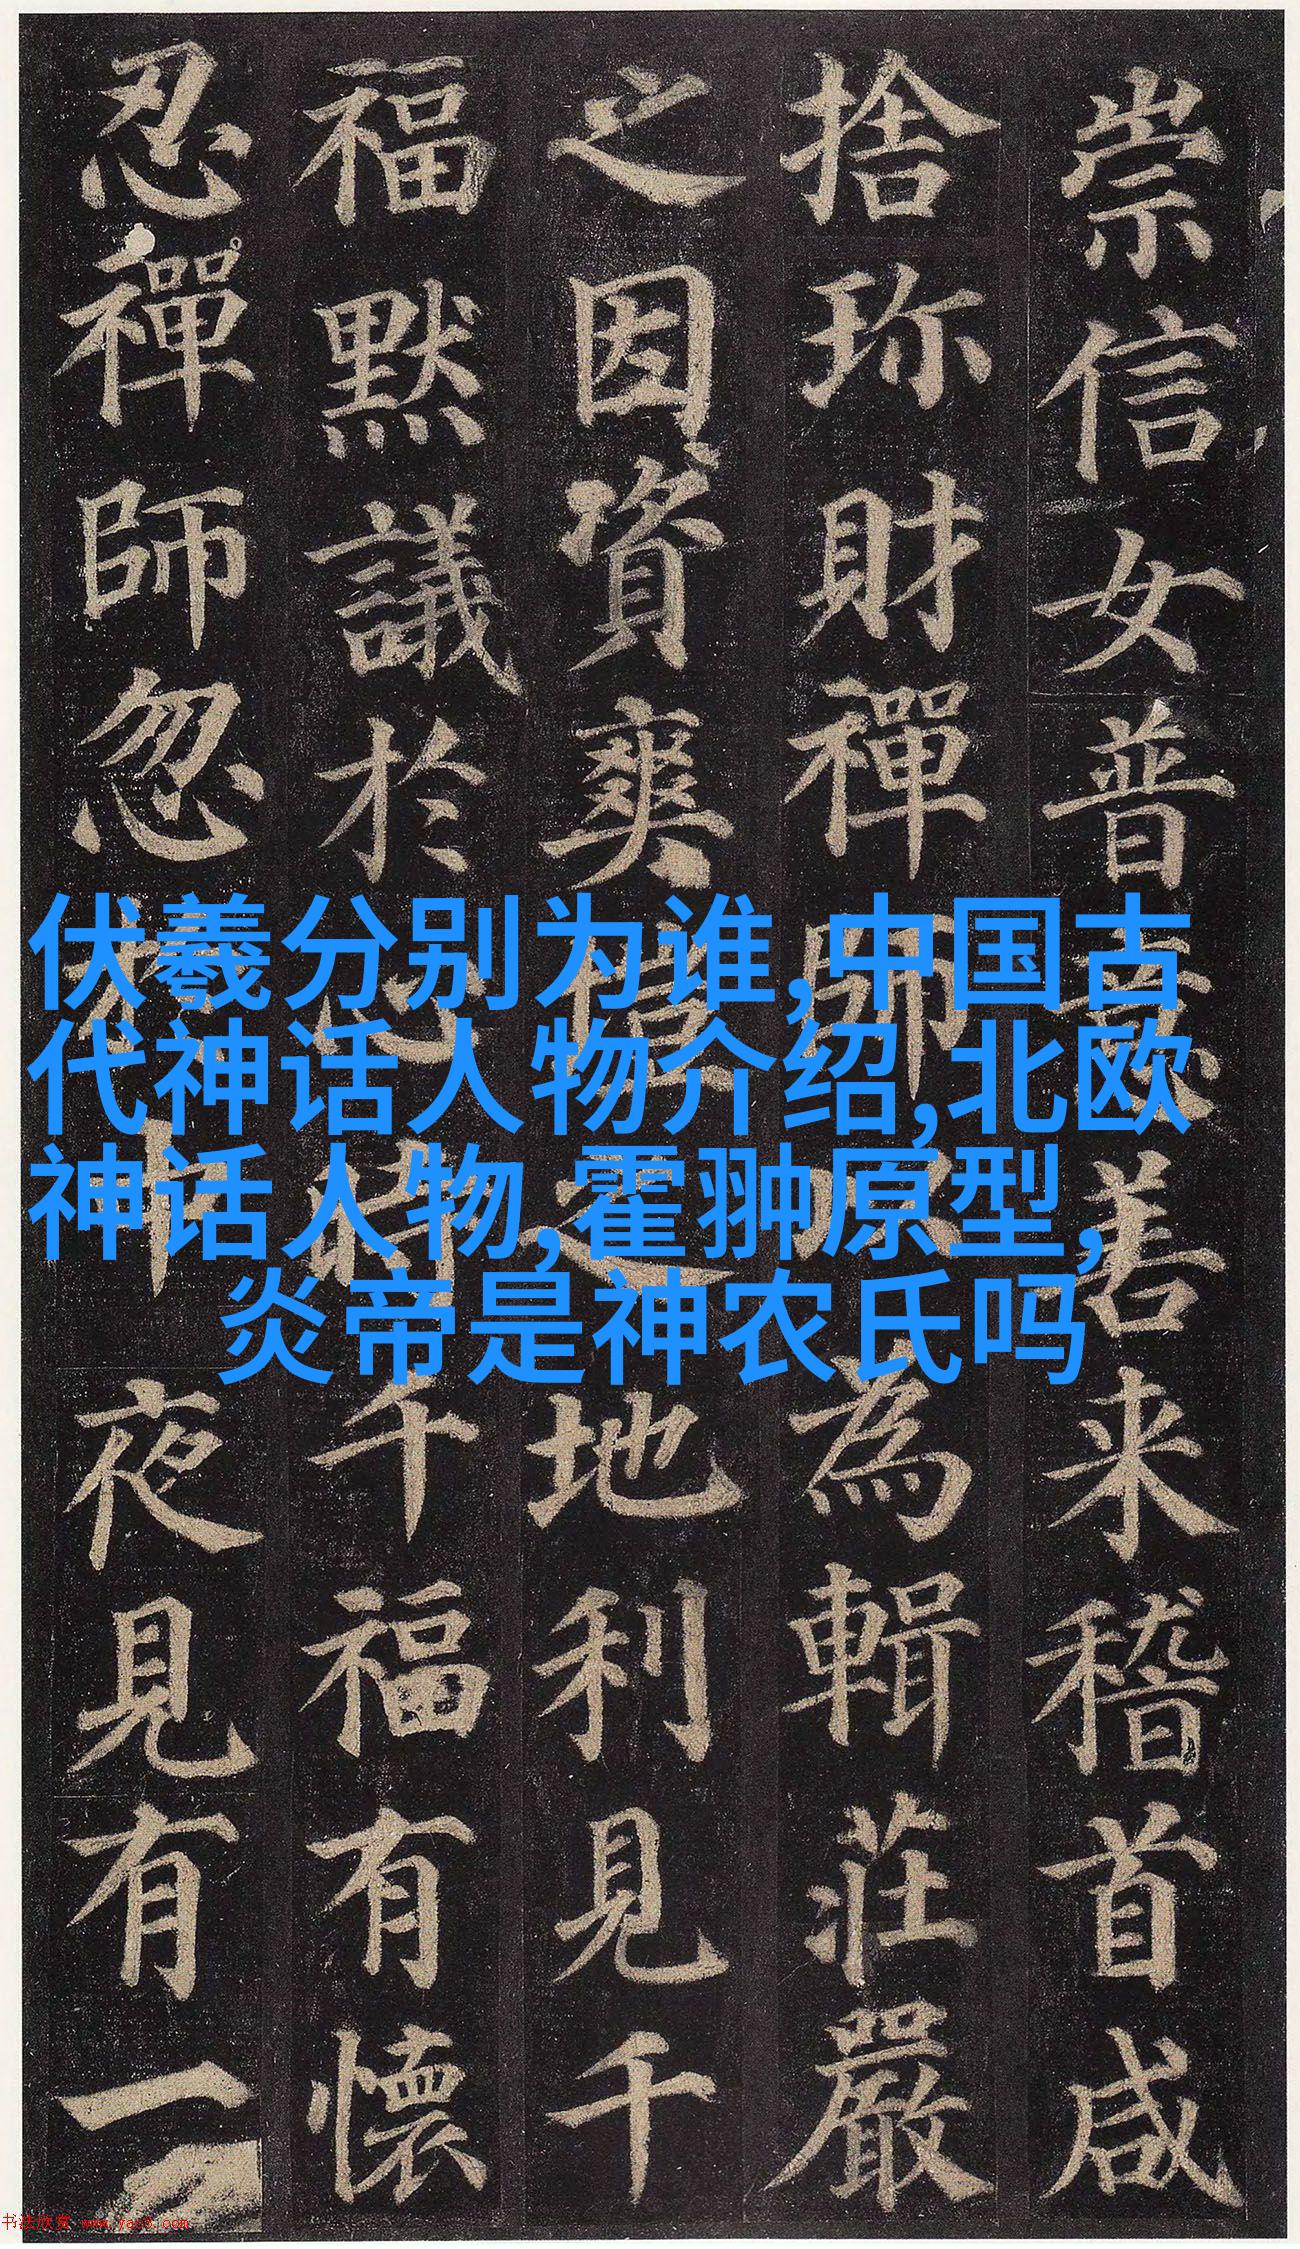 崇信女普意善来稽首咸
捨珎財禪師以為輯莊嚴
之因資爽塏之地利見千
福默議於心時千福有懷
忍禪師忽於中夜見有一
伏羲分别为谁,中国古
代神话人物介绍,北欧
神话人物,霍翀原型,
炎帝是神农氏吗
书法欣赏 www.yac8.com